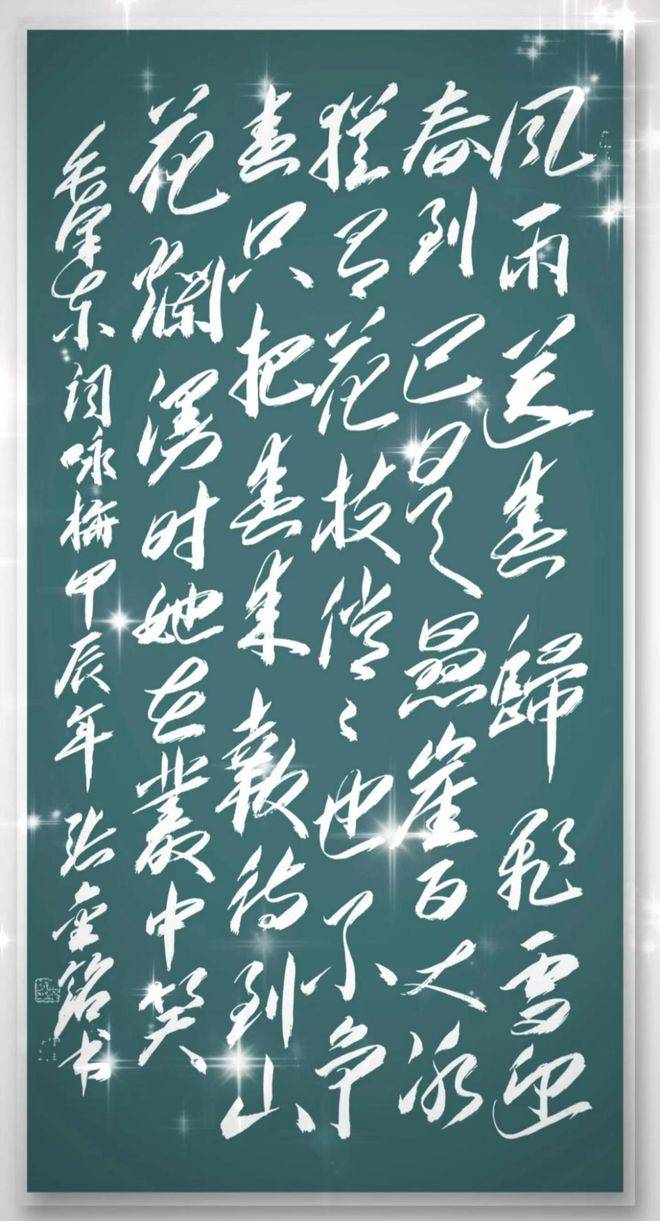 风雨送春歸飛雪迎
春到已是悬崖百丈冰
犹有花枝俏々也不争
春只把春来報待到山
花爛漫时她在叢中笑
毛泽东词咏梅甲辰年张金铭书